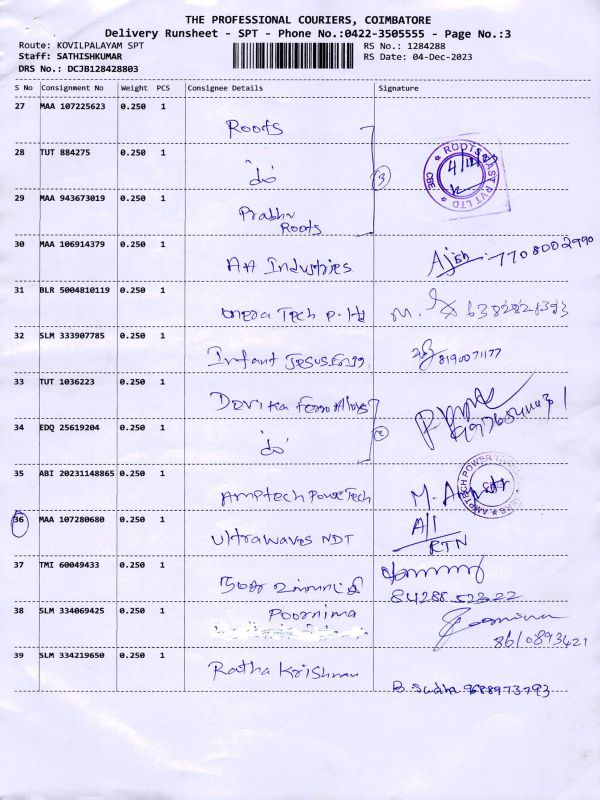 THE PROFESSIONAL COURIERS, COIMBATORE
Delivery Runsheet - SPT - Phone No.:0422-3505555 - Page No.:3
Route: KOVILPALAYAM SPT
RS No.: 1284288
Staff: SATHISHKUMAR
RS Date: 04-Dec-2023
DRS No.: DCJB128428803
S No Consignment No Weight PCS Consignee Details Signature
27 MAA 107225623 0.250 1
Roots
28 TUT 884275 0.250 1
3
ROOTS CAST PVT LTD CBE
4/12/23
29 MAA 943673019 0.250 1
Prabhu
Roots
30 MAA 106914379 0.250 1
AA Industries Ajith: 7708002990
31 BLR 5004810119 0.250 1
Tech P. Ltd M. 6382821393
32 SLM 333907785 0.250 1
Infant Jesus Engg 8190071177
33 TUT 1036223 0.250 1
Devika Ferro Alloys
34 EDQ 25619204 0.250 1
2
35 ABI 20231148865 0.250 1
AMPTECH POWER
Amptech PowerTech M.
36 MAA 107280680 0.250 1
Ultrawaves NDT A/I
RTN
37 TMI 60049433 0.250 1
84288 52222
38 SLM 334069425 0.250 1
Poornima
8610893421
39 SLM 334219650 0.250 1
Ratha Krishnan
B. Sudha 9688973793